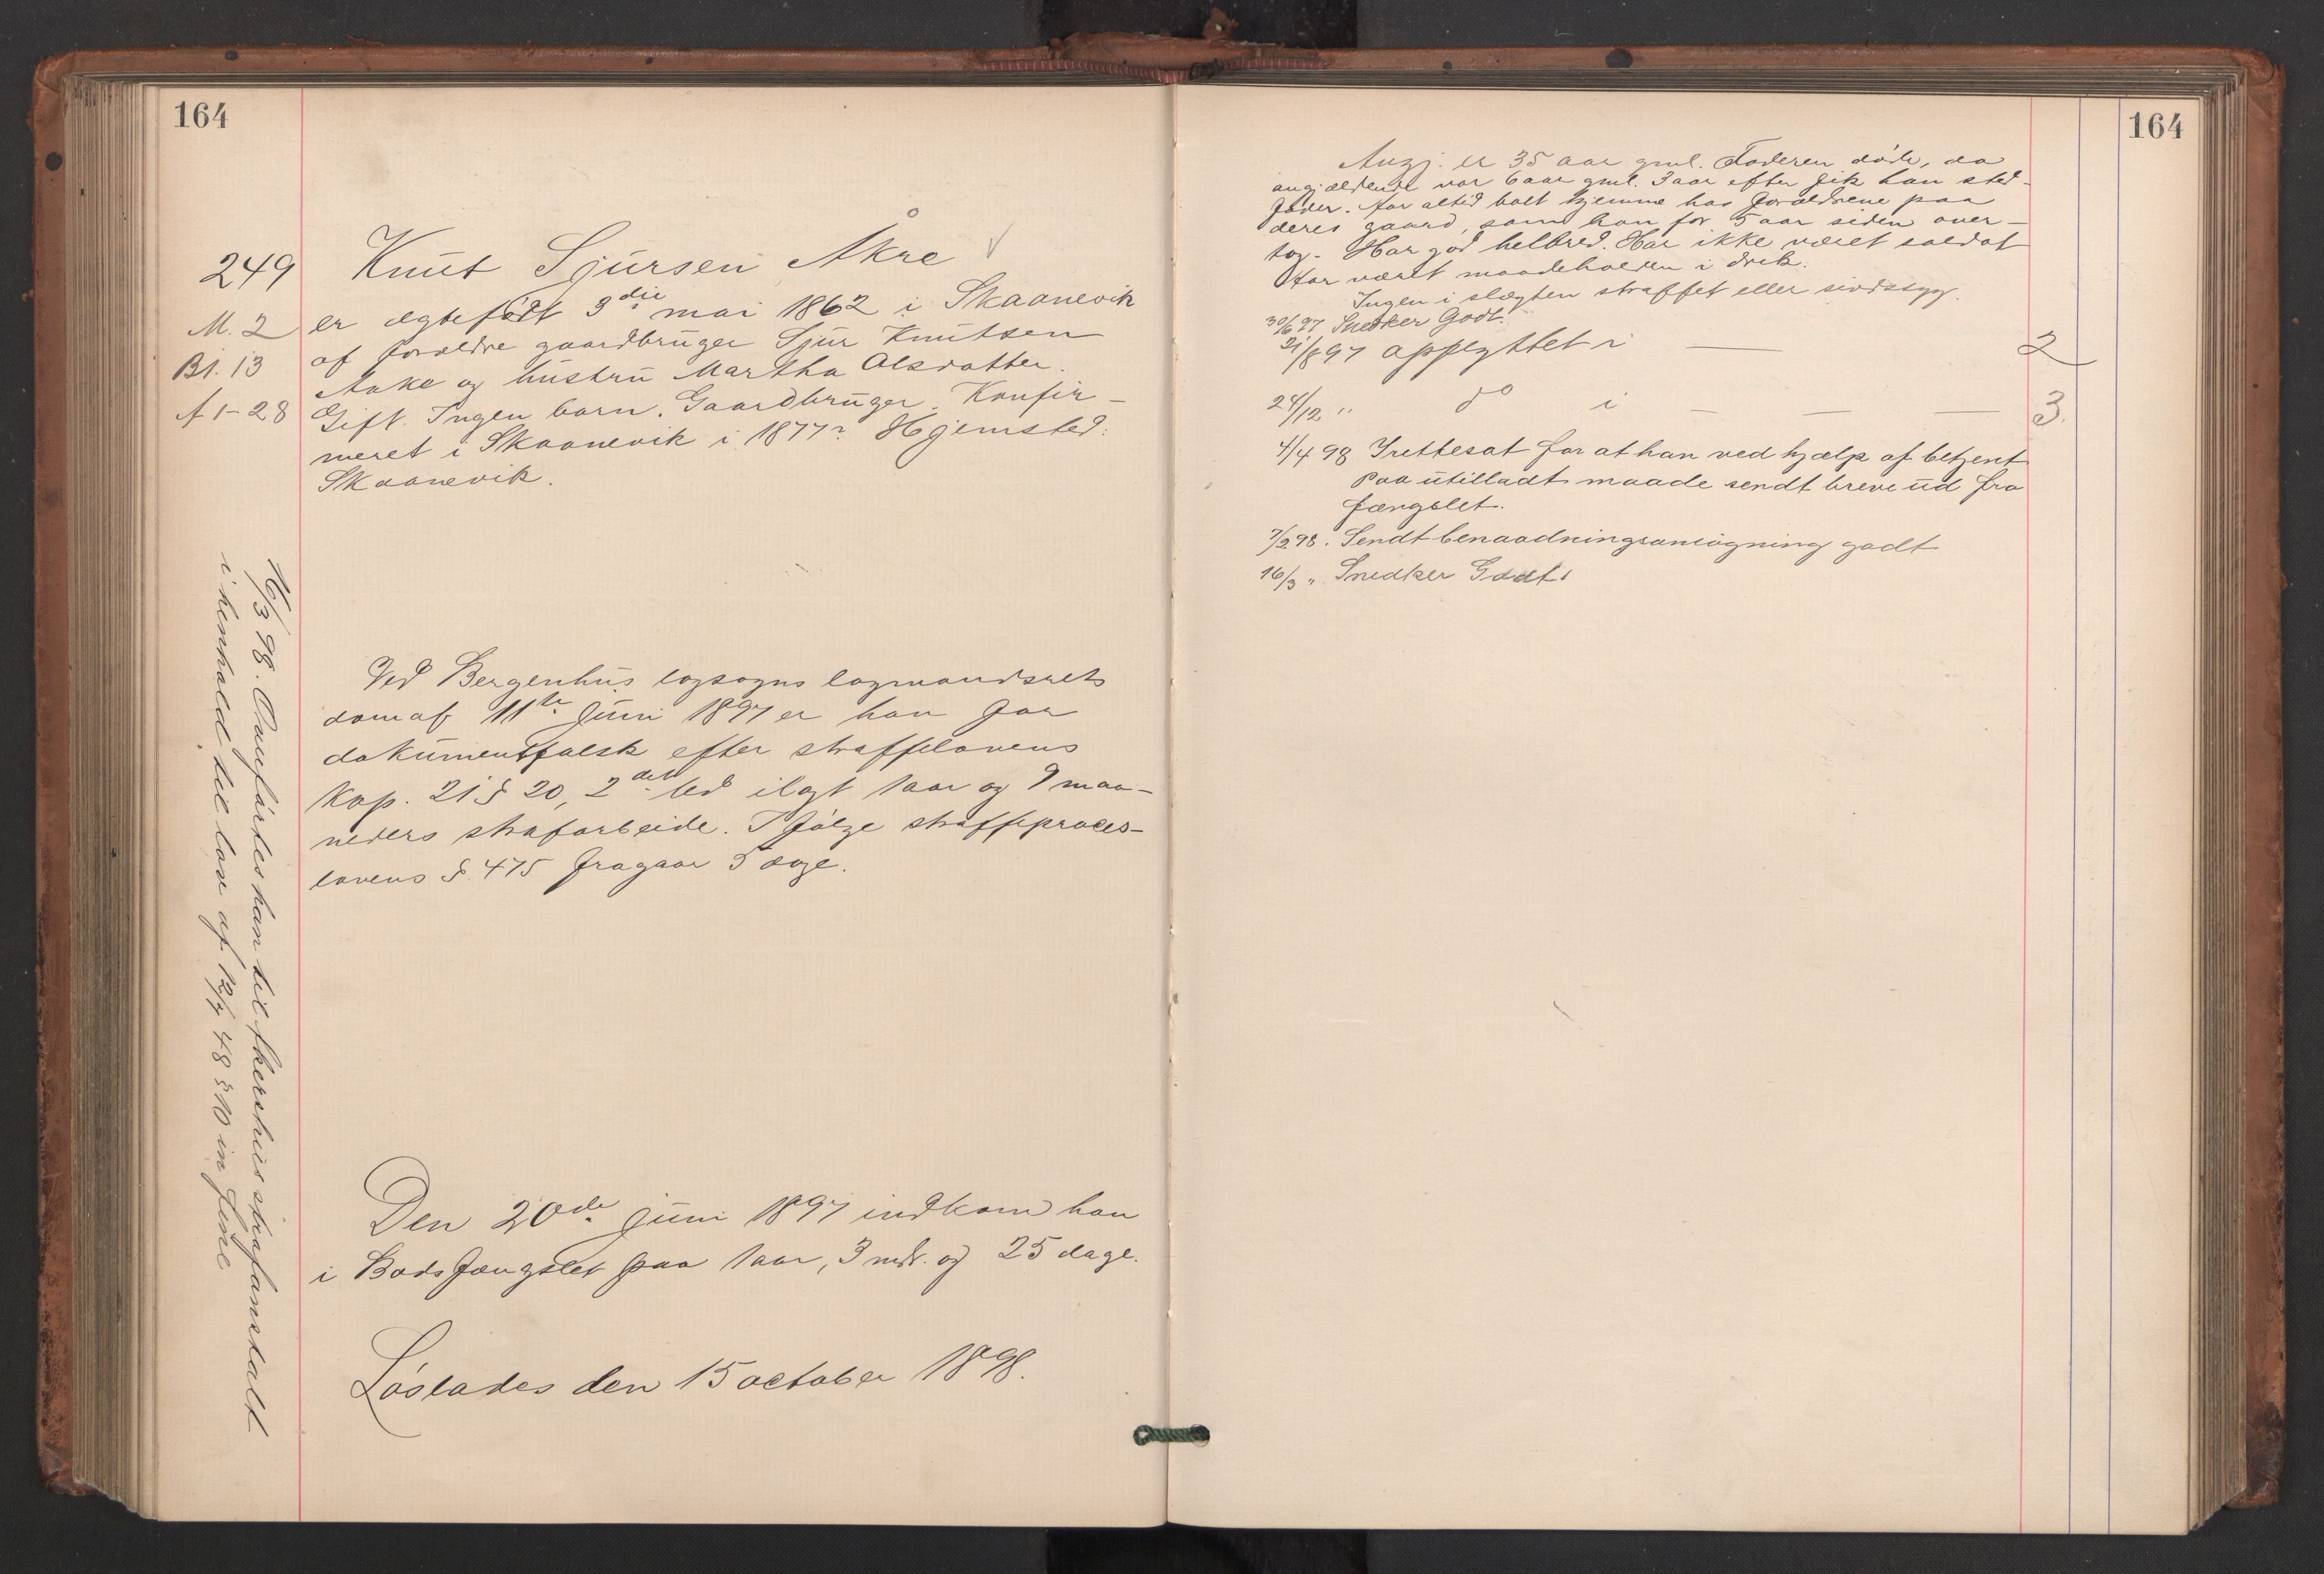 164
249
M. 2
Bl. 13
A 1-28
Knut Sjursen Åkre
er ægtefødt 3die mai 1862 i Skaanevik
af forældre gaardbruger Sjur Knutsen
Aake og hustru Martha Olsdatter.
Gift. Ingen barn. Gaardbruger. Konfir-
meret i Skaanevik i 1877? Hjemsted:
Skaanevik.
Ved Bergenhus lagsogns lagmandsrets
dom af 11te juni 1897 er han for
dokumentfalsk efter straffelovens
Kap. 21 § 20, 2det led ilagt 1 aar og 9 maa-
neders strafarbeide. I følge straffeproces-
lovens § 475 fragaar 5 dage.
Den 20de juni 1897 indkom han
i Bodsfængslet paa 1 aar, 3 mdr. og 25 dage.
Løslades den 15 october 1898.
16/3 98. Overførtes han til Akershus strafanstalt
i henhold til lov af 12/7 48 § 10 in fine
164
Angj. er 35 aar gml. Faderen døde, da
angjældende var 6 aar gml. 3 aar efter fik han sted-
fader. Har altid bott hjemme hos forældrene paa
deres gaard, som han for 5 aar siden over-
tog. Har god helbred. Har ikke været soldat
Har været maadeholden i drik.
Ingen i slægten straffet eller sindssyg.
30/6 97 Snedker Godt.
21/8 97 opflyttet i — 2
24/12 " do i — — — 3.
4/4 98 Irettesat for at han ved hjælp af betjent
paa utilladt maade sendt breve ud fra
fængslet.
7/2 98. Sendt benaadningsansøgning godt
16/3 " Snedker Godt.